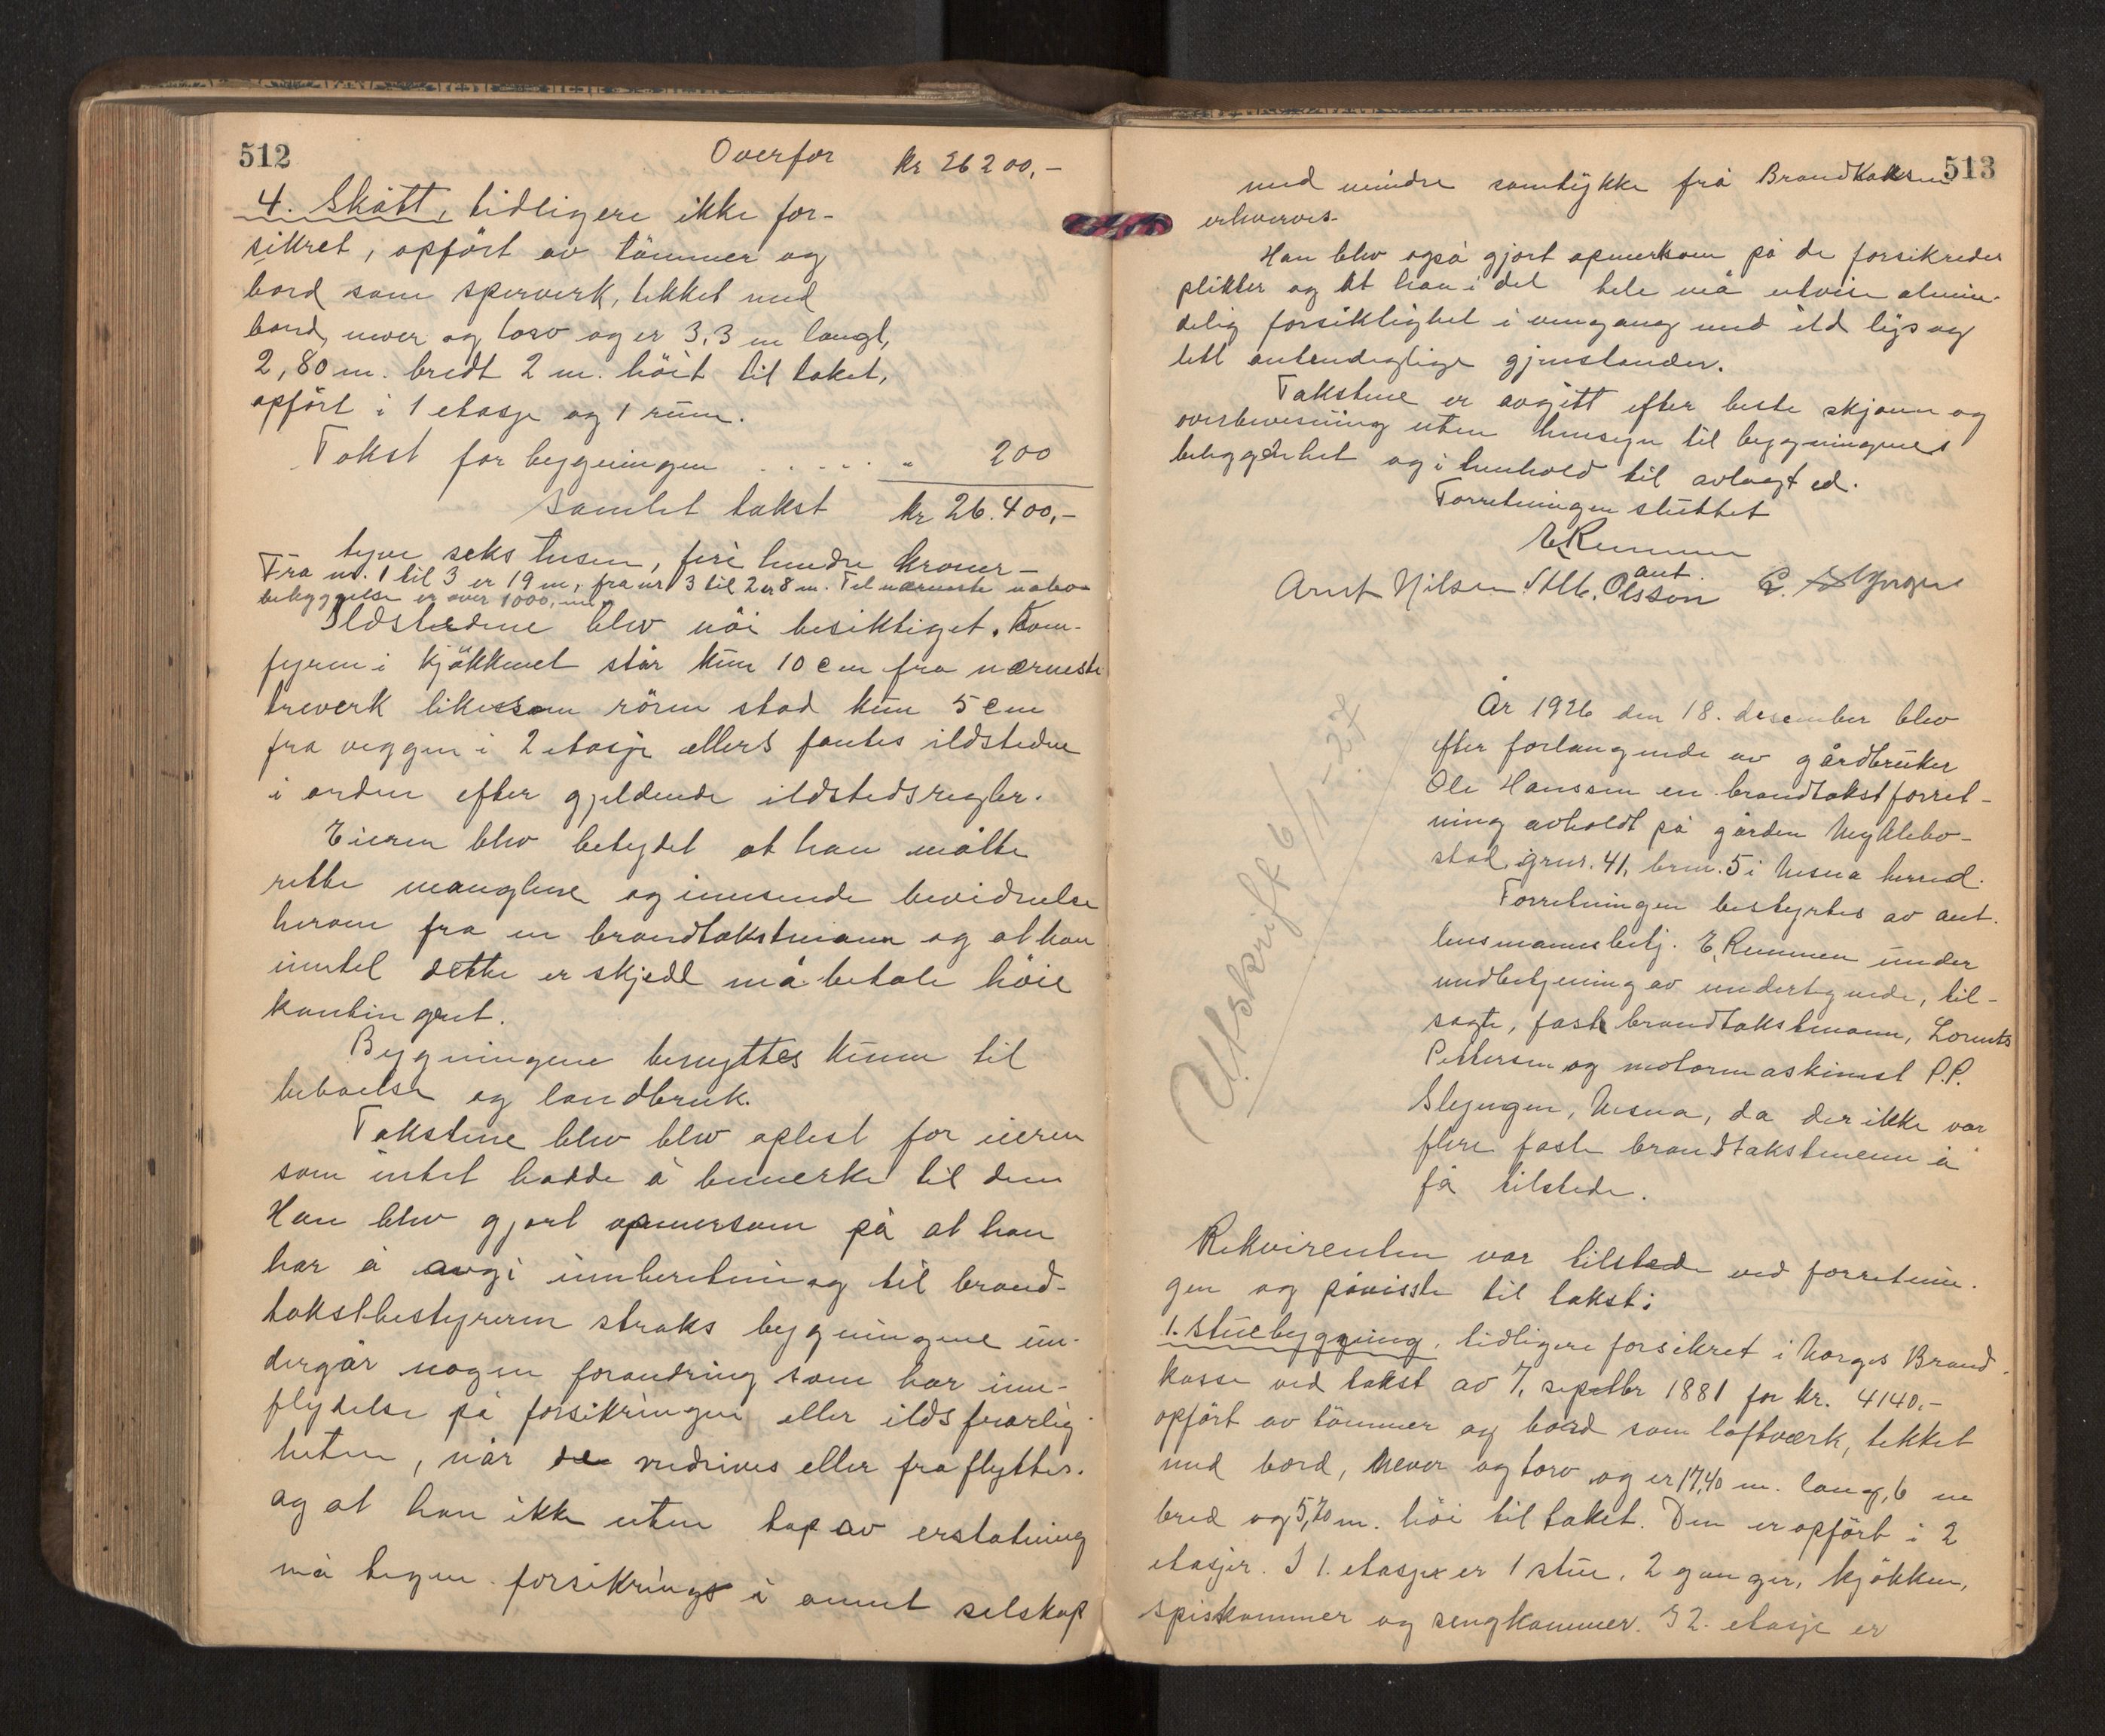 512
Overfør kr 26200,-
4. Skått, tidligere ikke for-
sikret, opført av tømmer og
bord som sperverk, tekket med
bord, never og torv og er 3,3 m langt,
2,80 m. bredt 2 m. höit til taket,
opfört i 1 etasje og 1 rum.
Takst for bygningen . . . . . " 200
Samlet takst kr 26.400,-
tyve seks tusen, fire hundre kroner-
Fra nr. 1 til 3 er 19 m, fra nr 3 til 2 er 8 m. Til nærmeste nabo-
bebyggelse er over 1000,- m.
Ildstedene blev nöi besiktiget. Kom-
fyren i kjökkenet står kun 10 cm fra nærmeste
treverk likesom rören stod kun 5 cm
fra veggen i 2 etasje ellers fantes ildstedene
i orden efter gjeldende ildstedsregler.
Eieren blev betydet at han måtte
rette manglene og innsende bevidnelse
herom fra en brandtakstmann og at han
inntil dette er skjedd må betale höie
kontingent.
Bygningene benyttes kunn til
beboelse og landbruk.
Takstene blev blev oplest for eieren
som intet hadde å bemerke til dem
Han blev gjort opmersom på at han
har å avgi innberetning til brand-
takstbestyreren straks bygningene un-
dergår nogen forandring som har inn-
flydelse på forsikringen eller ildsfarlig-
heten, når de nedrives eller fraflyttes.
og at han ikke uten tap av erstatning
må tegne forsikrings i annet selskap
513
med mindre samtykke frå Brandkassen
erhverves.
Han blev også gjort opmerksom på de forsikredes
plikter og at han i det hele må utvise almin-
delig forsiktighet i omgang med ild lys og
lett antendeglige gjenstander.
Takstene er avgitt efter beste skjønn og
overbevisning uten hensyn til bygningenes
beliggenhet og i henhold til avlagt ed.
Forretningen sluttet
E Remmen
aut.
Arnt Nilsen St M. Olsson
Utskrift 6/1-27
År 1926 den 18. desember blev
efter forlangende av gårdbruker
Ole Hanssen en brandtakstforret-
ning avholdt på gården Myklebo-
stad, grnr. 41, brnr. 5 i Nesna herred.
Forretningen bestyrtes av aut.
lensmannsbetj. E. Remmen under
medbetjening av undertegnede, til-
sagte, faste brandtakstmann, Lorents
Pettersen og motormaskinist P.P.
Slegngen, Nesna, da der ikke var
flere faste brandtakstmenn å
få tilstede.
Rekvirenten var tilstede ved forretnin-
gen og påviste til takst:
1. Stuebygning, tidligere forsikret i Norges Brand-
kasse ved takst av 7. septbr 1881 for kr. 4140,-
opfört av tömmer og bord som loftværk, tekket
med bord, never og torv og er 17,40 m. lang, 6 m
bred og 5,70 m. höi til taket. Den er opfört i 2
etasjer. I 1. etasje er 1 stue, 2 ganger, kjökken,
spiskammer og sengkammer. I 2. etasje er